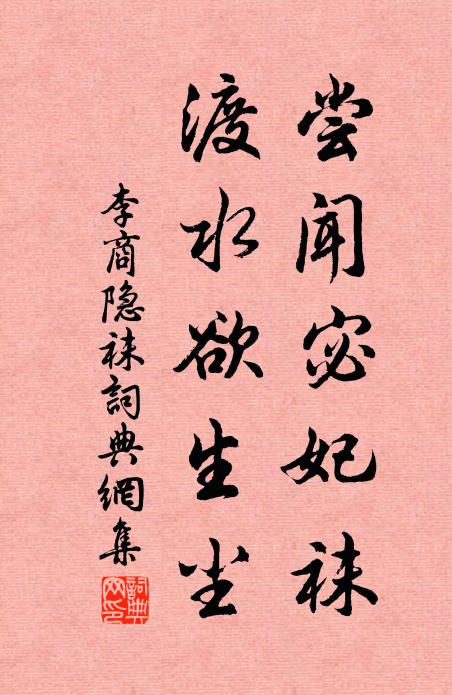 尝闻宓妃袜
渡水欲生尘
李商隐袜詞典網集
詞典网印